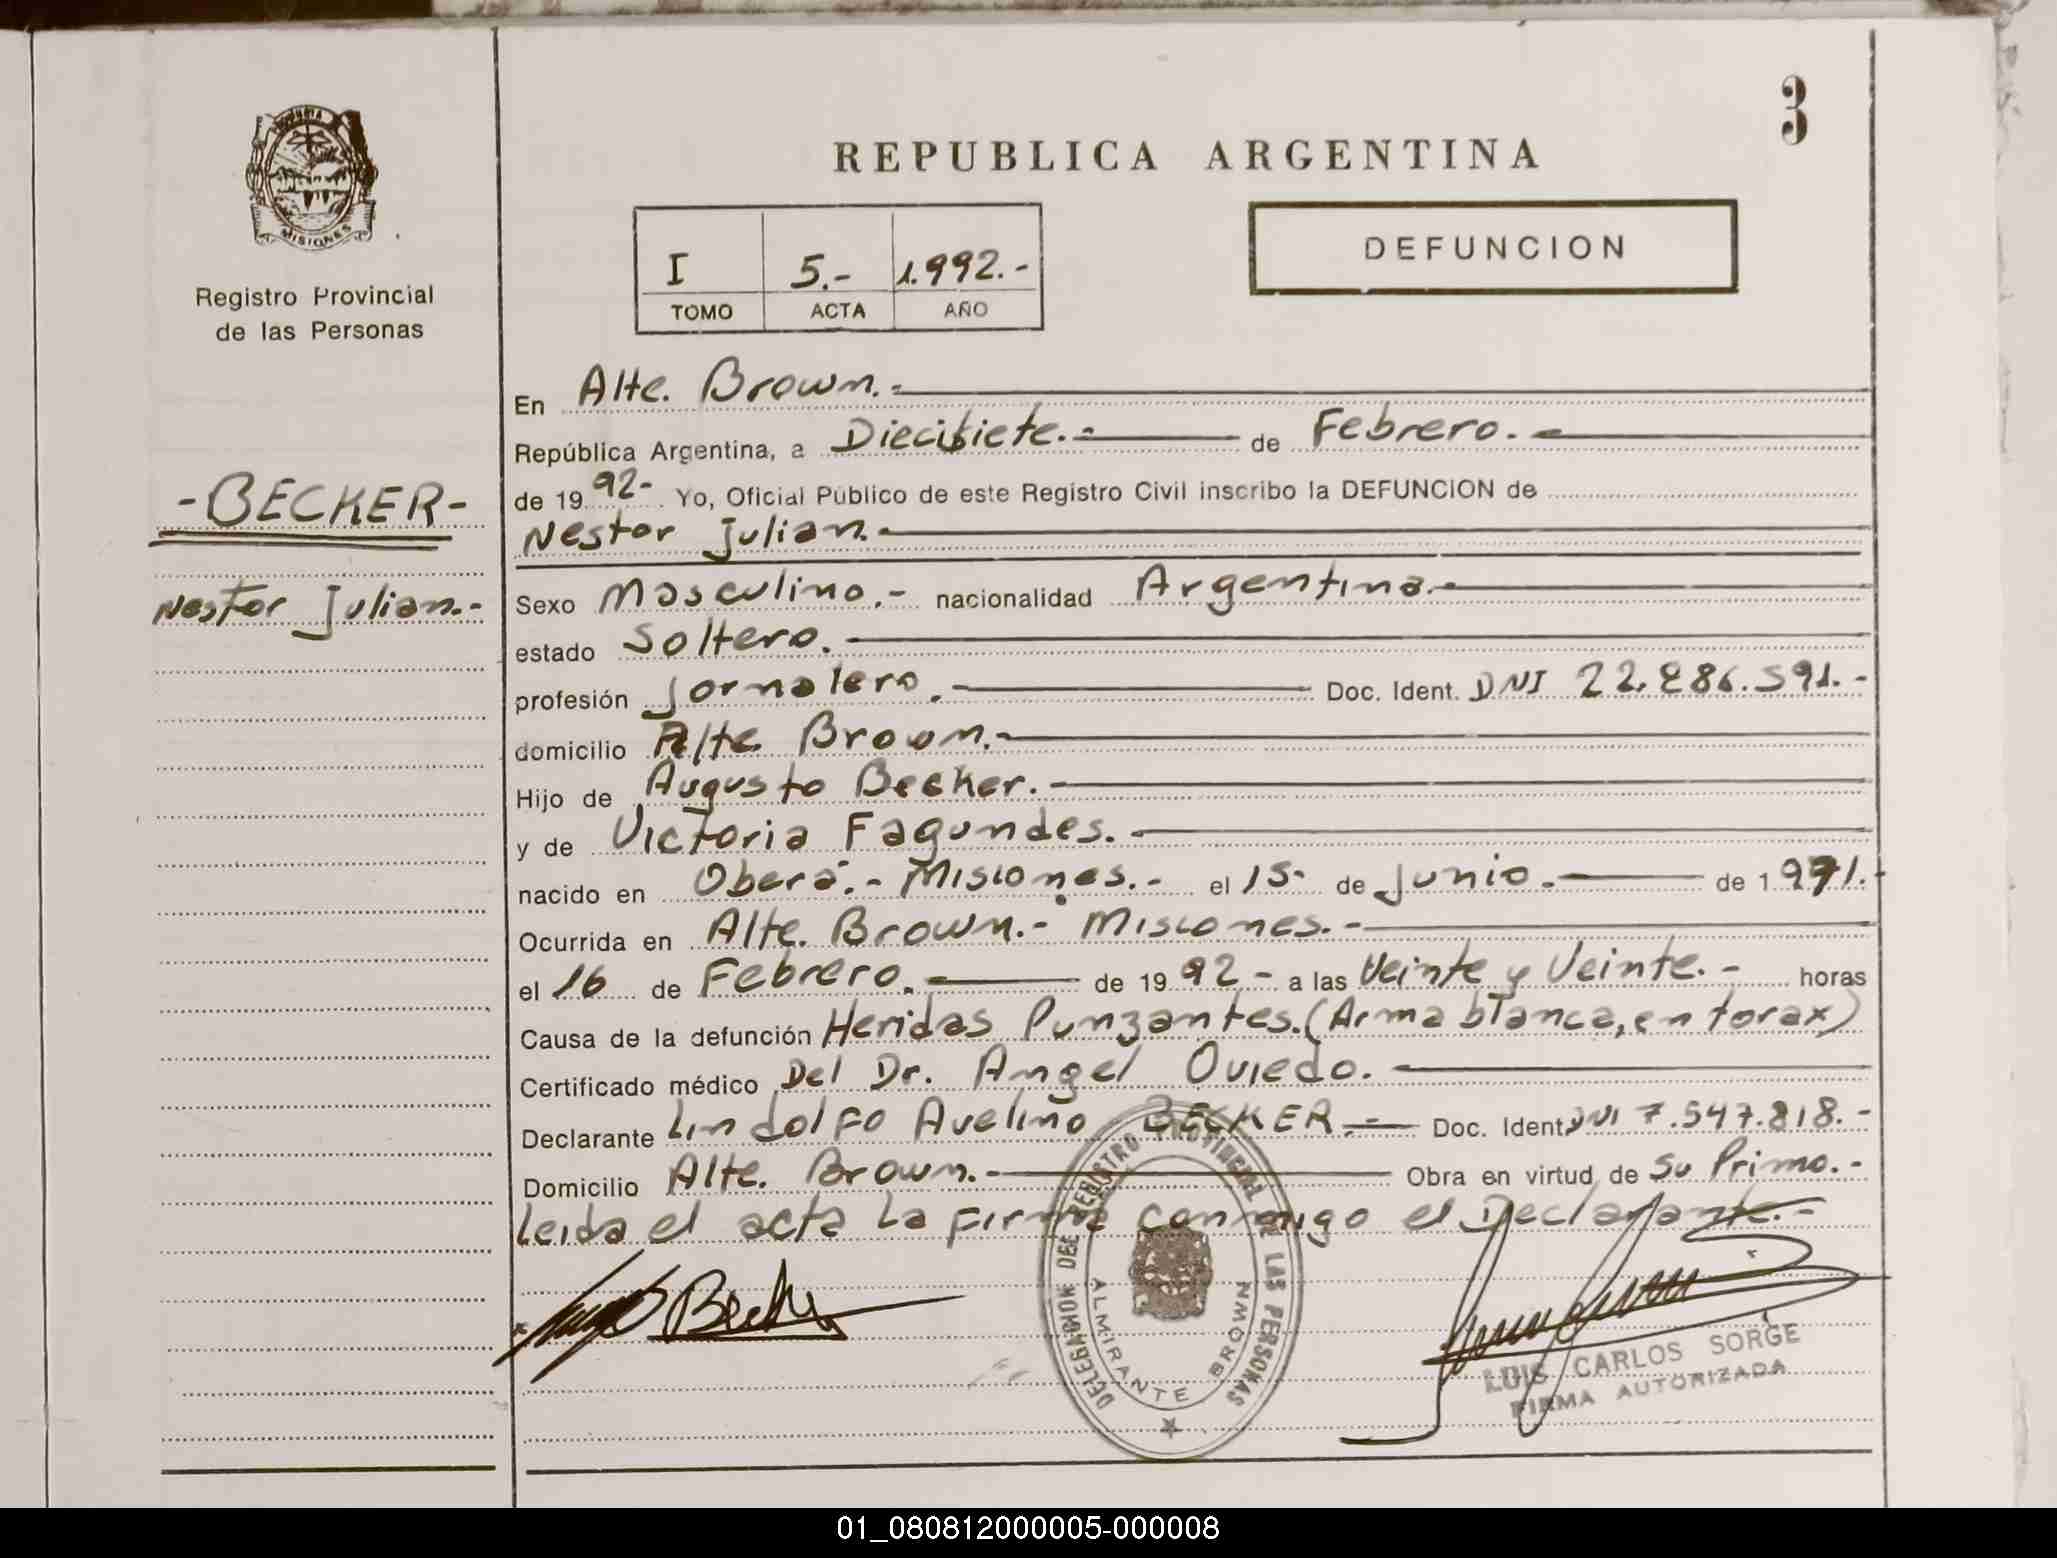 3
REPUBLICA ARGENTINA
MISIONES
Registro Provincial
de las Personas
I 5.- 1.992.-
TOMO ACTA AÑO
DEFUNCION
-BECKER-
Nestor Julian.-
En Alte. Brown.-
República Argentina, a Diecisiete.- de Febrero.-
de 19 92- Yo, Oficial Público de este Registro Civil inscribo la DEFUNCION de
Nestor Julian.-
Sexo Masculino.- nacionalidad Argentina.-
estado Soltero.
profesión Jornalero.- Doc. Ident. DNI 22.886.591.-
domicilio Alte. Brown.-
Hijo de Augusto Becker.-
y de Victoria Fagundes.-
nacido en Oberá.- Misiones.- el 15- de Junio.- de 1971.-
Ocurrida en Alte. Brown.- Misiones.-
el 16 de Febrero.- de 19 92- a las Veinte y Veinte.- horas
Causa de la defunción Heridas Punzantes.(Arma blanca, en torax)
Certificado médico Del Dr. Angel Oviedo.-
Declarante Lindolfo Avelino BECKER.- Doc. Ident. DNI 7.547.818.-
Domicilio Alte. Brown.- Obra en virtud de Su Primo.-
Leida el acta La firma conmigo el Declarante.-
Becker
DELEGACION DEL REGISTRO PROVINCIAL DE LAS PERSONAS
ALMIRANTE BROWN
LUIS CARLOS SORGE
FIRMA AUTORIZADA
01_080812000005-000008